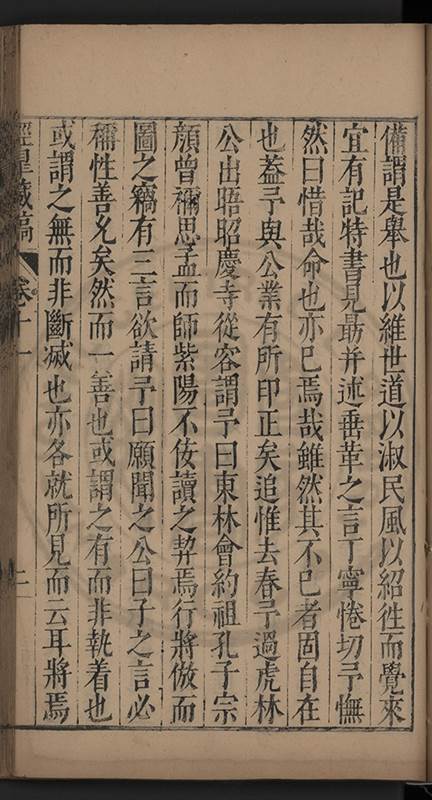 備謂是舉也以維世道以淑民風以紹徃而覺來
宜有記特書見勗并述垂革之言丁寧惓切予憮
然曰惜哉命也亦已焉哉雖然其不已者固自在
也葢予與公業有所印正矣追惟去春予過虎林
公出晤昭慶寺從容謂予曰東林會約祖孔子宗
顔曾禰思孟而師紫陽不佞讀之契焉行將倣而
圖之竊有三言欲請予曰願聞之公曰子之言必
稱性善允矣然而一善也或謂之有而非執着也
或謂之無而非斷滅也亦各就所見而云耳將焉
涇臯藏稿
卷十一
二